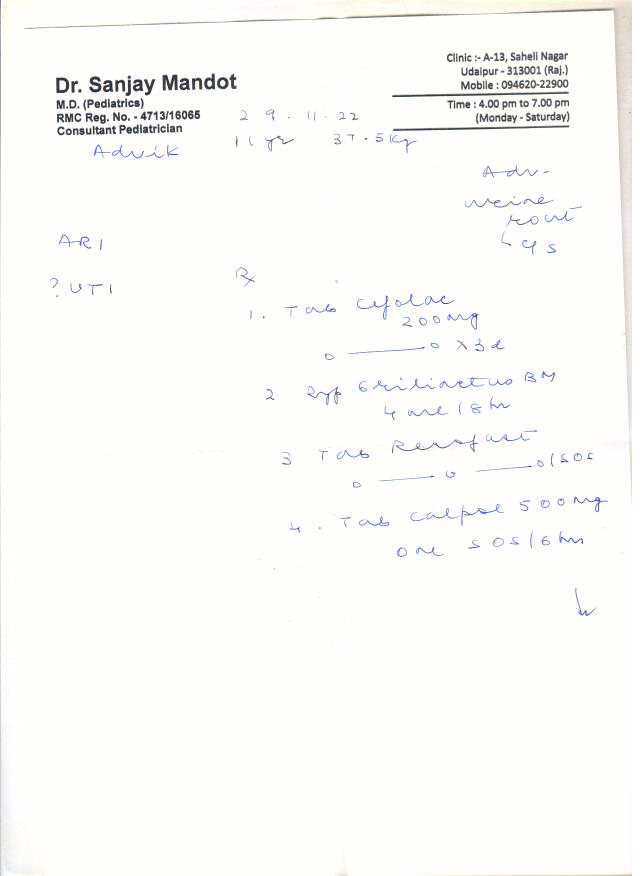 Dr. Sanjay Mandot
M.D. (Pediatrics)
RMC Reg. No. - 4713/16065
Consultant Pediatrician
Clinic :- A-13, Saheli Nagar
Udaipur - 313001 (Raj.)
Mobile : 094620-22900
Time : 4.00 pm to 7.00 pm
(Monday - Saturday)
Advik
29.11.22
11 yr 37.5 Kg
Adv-
ARI
? UTI
Rx
1. Tab
200 mg
0 — 0 x 3d
2 Syp Grilinctus BM
4 ml / 8 hr
3 Tab
0 — 0 — 0 / SOS
4. Tab Calpol 500 mg
one SOS / 6 hrs